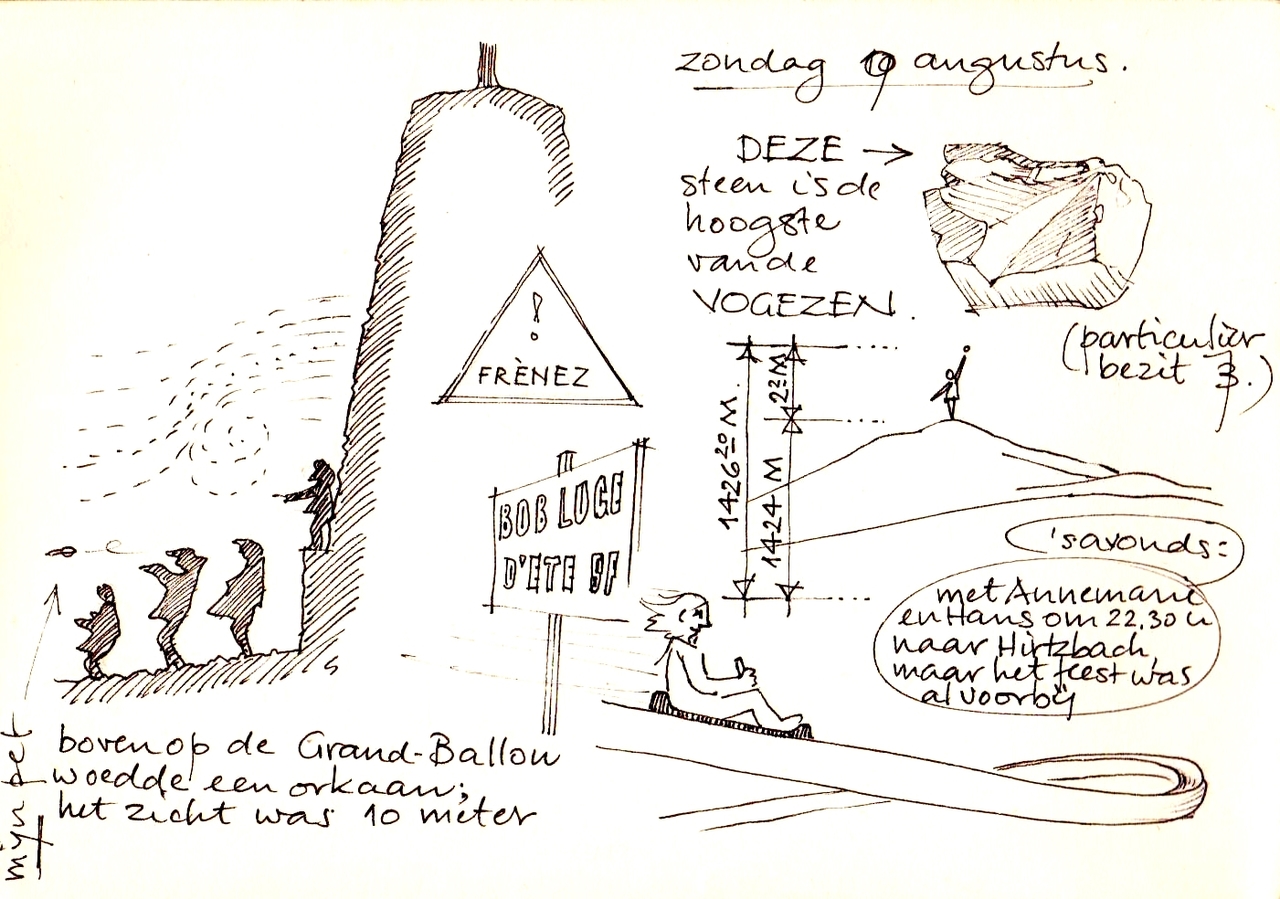 zondag 19 augustus.
DEZE →
steen is de
hoogste
van de
VOGEZEN.
(particulier
bezit )
!
FRÈNEZ
1426²⁰ M.
2²⁰ M
1424 M
BOB LUGE
D'ETE 9F
's avonds:
met Annemarie
en Hans om 22.30 u
naar Hirtzbach
maar het feest was
al voorbij
mijn pet
boven op de Grand-Ballon
woedde een orkaan;
het zicht was 10 meter